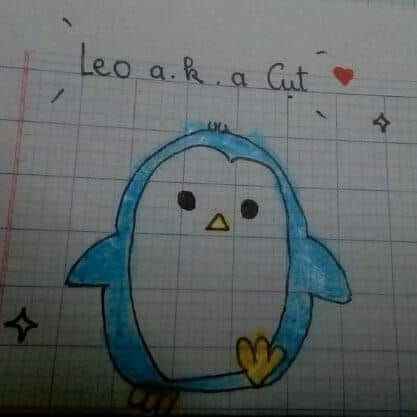 Leo a.k.a Cụt ❤